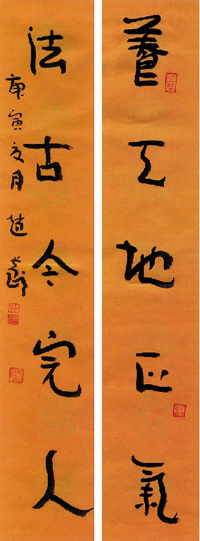 養天地正氣
法古今完人
庚寅夏月